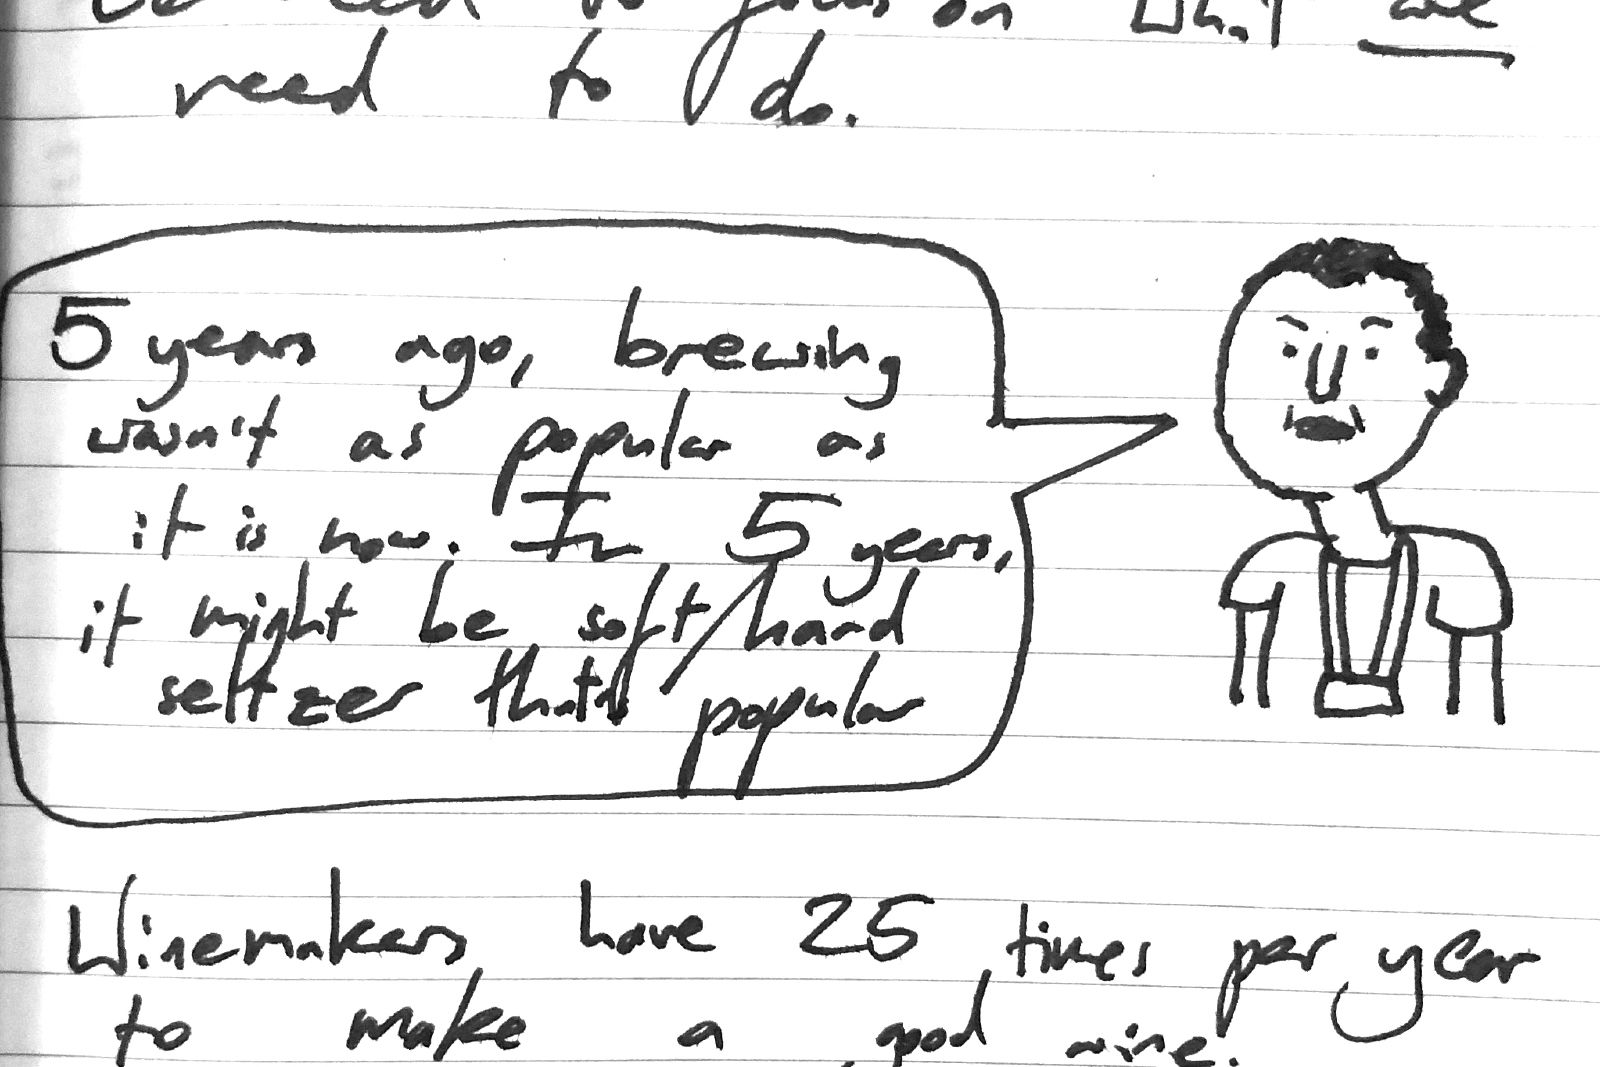 need to focus on what we
need to do.
5 years ago, brewing
wasn't as popular as
it is now. In 5 years,
it might be soft/hard
seltzer that's popular
Winemakers have 25 times per year
to make a good wine.